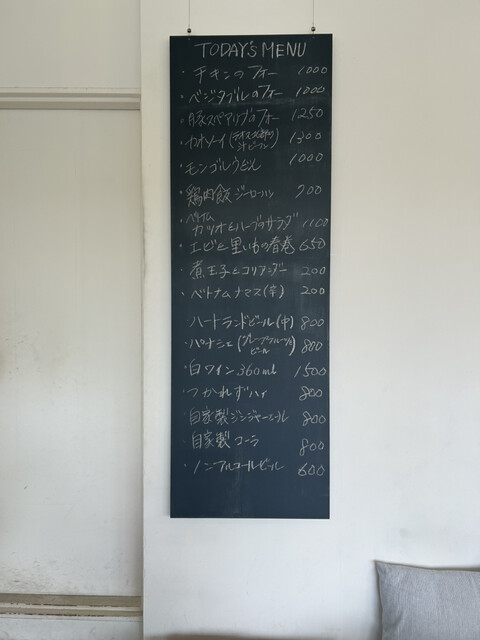 TODAY'S MENU
・チキンのフォー 1000
・ベジタブルのフォー 1000
・豚スペアリブのフォー 1250
・カオソーイ (ラオス北部の汁ビーフン) 1300
・モンゴルうどん 1000
・鶏肉飯 ジーローハン 700
ベトナム
・カツオとハーブのサラダ 1100
・エビと里いもの春巻 650
・煮玉子とコリアンダー 200
・ベトナムナマス(辛) 200
・ハートランドビール(中) 800
・パナシェ (グレープフルーツとビール) 800
・白ワイン 360ml 1500
・つかれずハイ 800
・自家製ジンジャーエール 800
・自家製 コーラ 800
・ノンアルコールビール 600